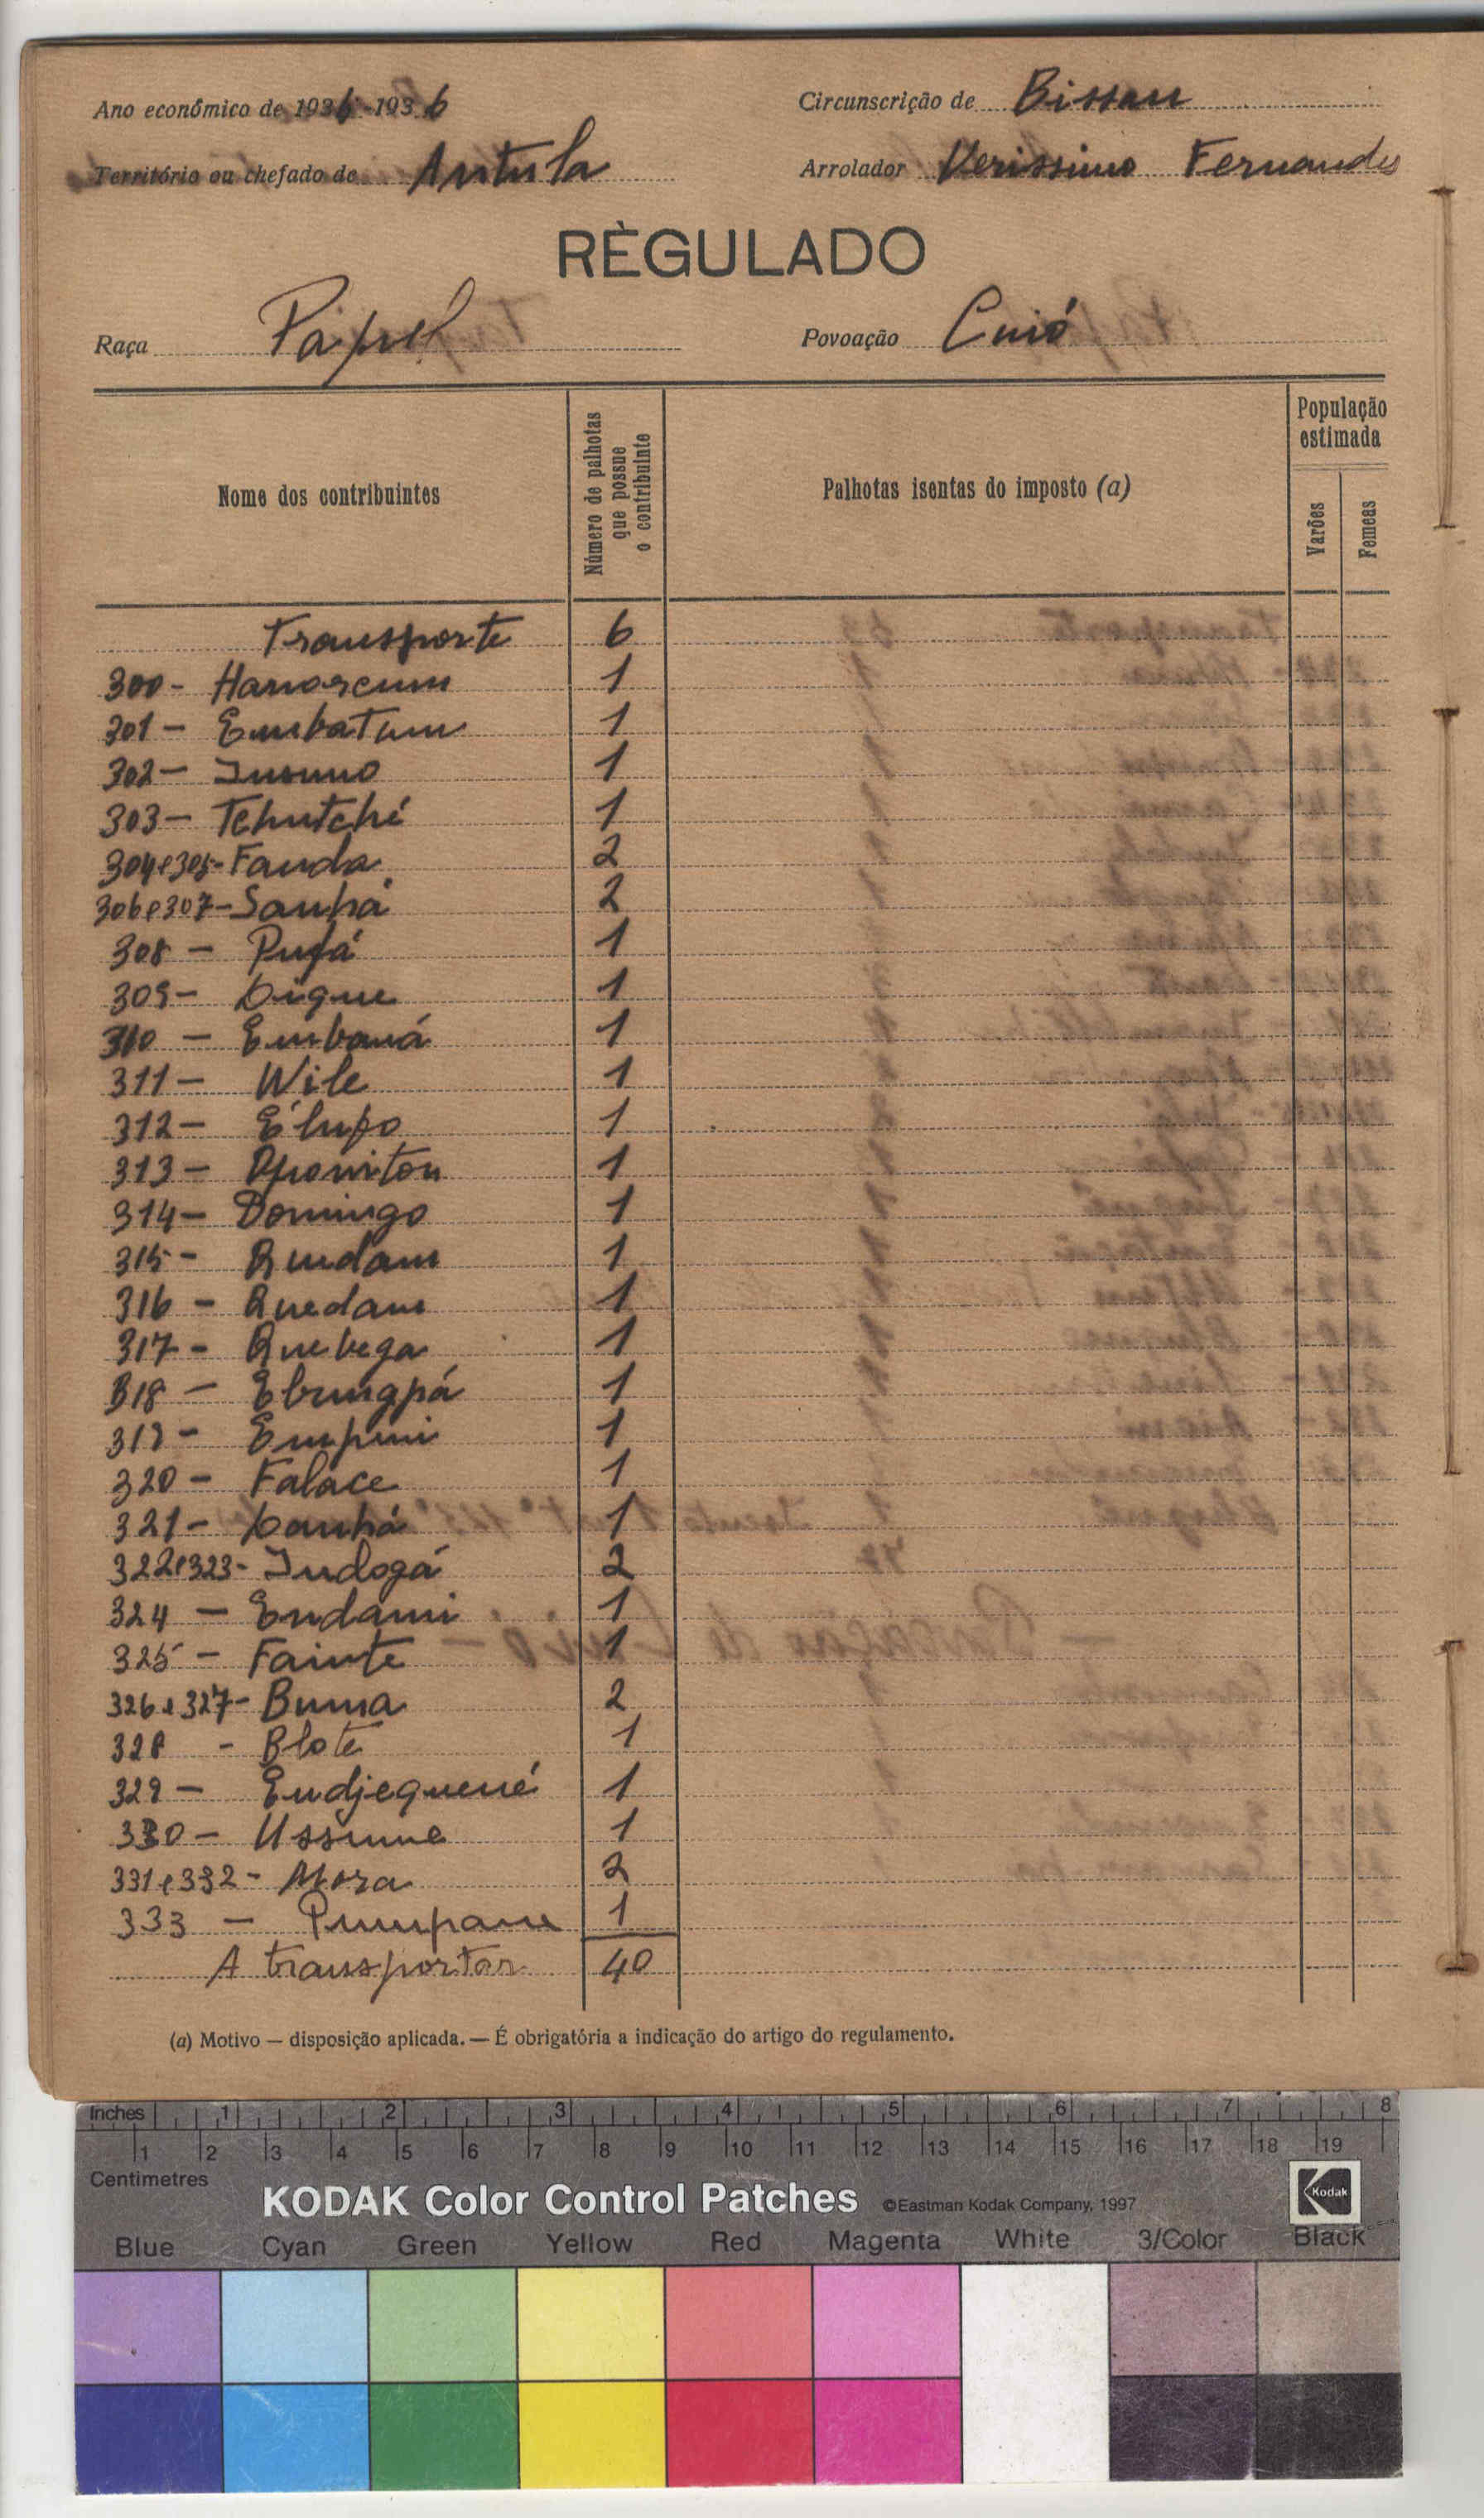 Ano económico de 1936-1936
Circunscrição de Bissau
Território ou chefado de Antula
Arrolador Verissimo Fernandes
RÈGULADO
Raça Papel
Povoação Cuió
Nome dos contribuintes
Número de palhotas que possue o contribuinte
Palhotas isentas do imposto (a)
População estimada
Varões
Femeas
Transporte 6
300 - 1
301 - Embatum 1
302 - 1
303 - Tchutché 1
304 e 305 - Fanda 2
306 e 307 - Sanhá 2
308 - Pufá 1
309 - Digue 1
310 - Embaná 1
311 - Wile 1
312 - Élupo 1
313 - 1
314 - Domingo 1
315 - 1
316 - Quedam 1
317 - Quebega 1
318 - 1
319 - 1
320 - Falace 1
321 - Danhá 1
322 e 323 - Indogá 2
324 - Endami 1
325 - Fainte 1
326 e 327 - Buma 2
328 - Blote 1
329 - Endjequené 1
330 - Ussume 1
331 e 332 - Mora 2
333 - 1
A transportar 40
(a) Motivo — disposição aplicada. — É obrigatória a indicação do artigo do regulamento.
Inches 1 2 3 4 5 6 7 8
1 2 3 4 5 6 7 8 9 10 11 12 13 14 15 16 17 18 19
Centimetres
KODAK Color Control Patches ©Eastman Kodak Company, 1997 Kodak
Blue Cyan Green Yellow Red Magenta White 3/Color Black